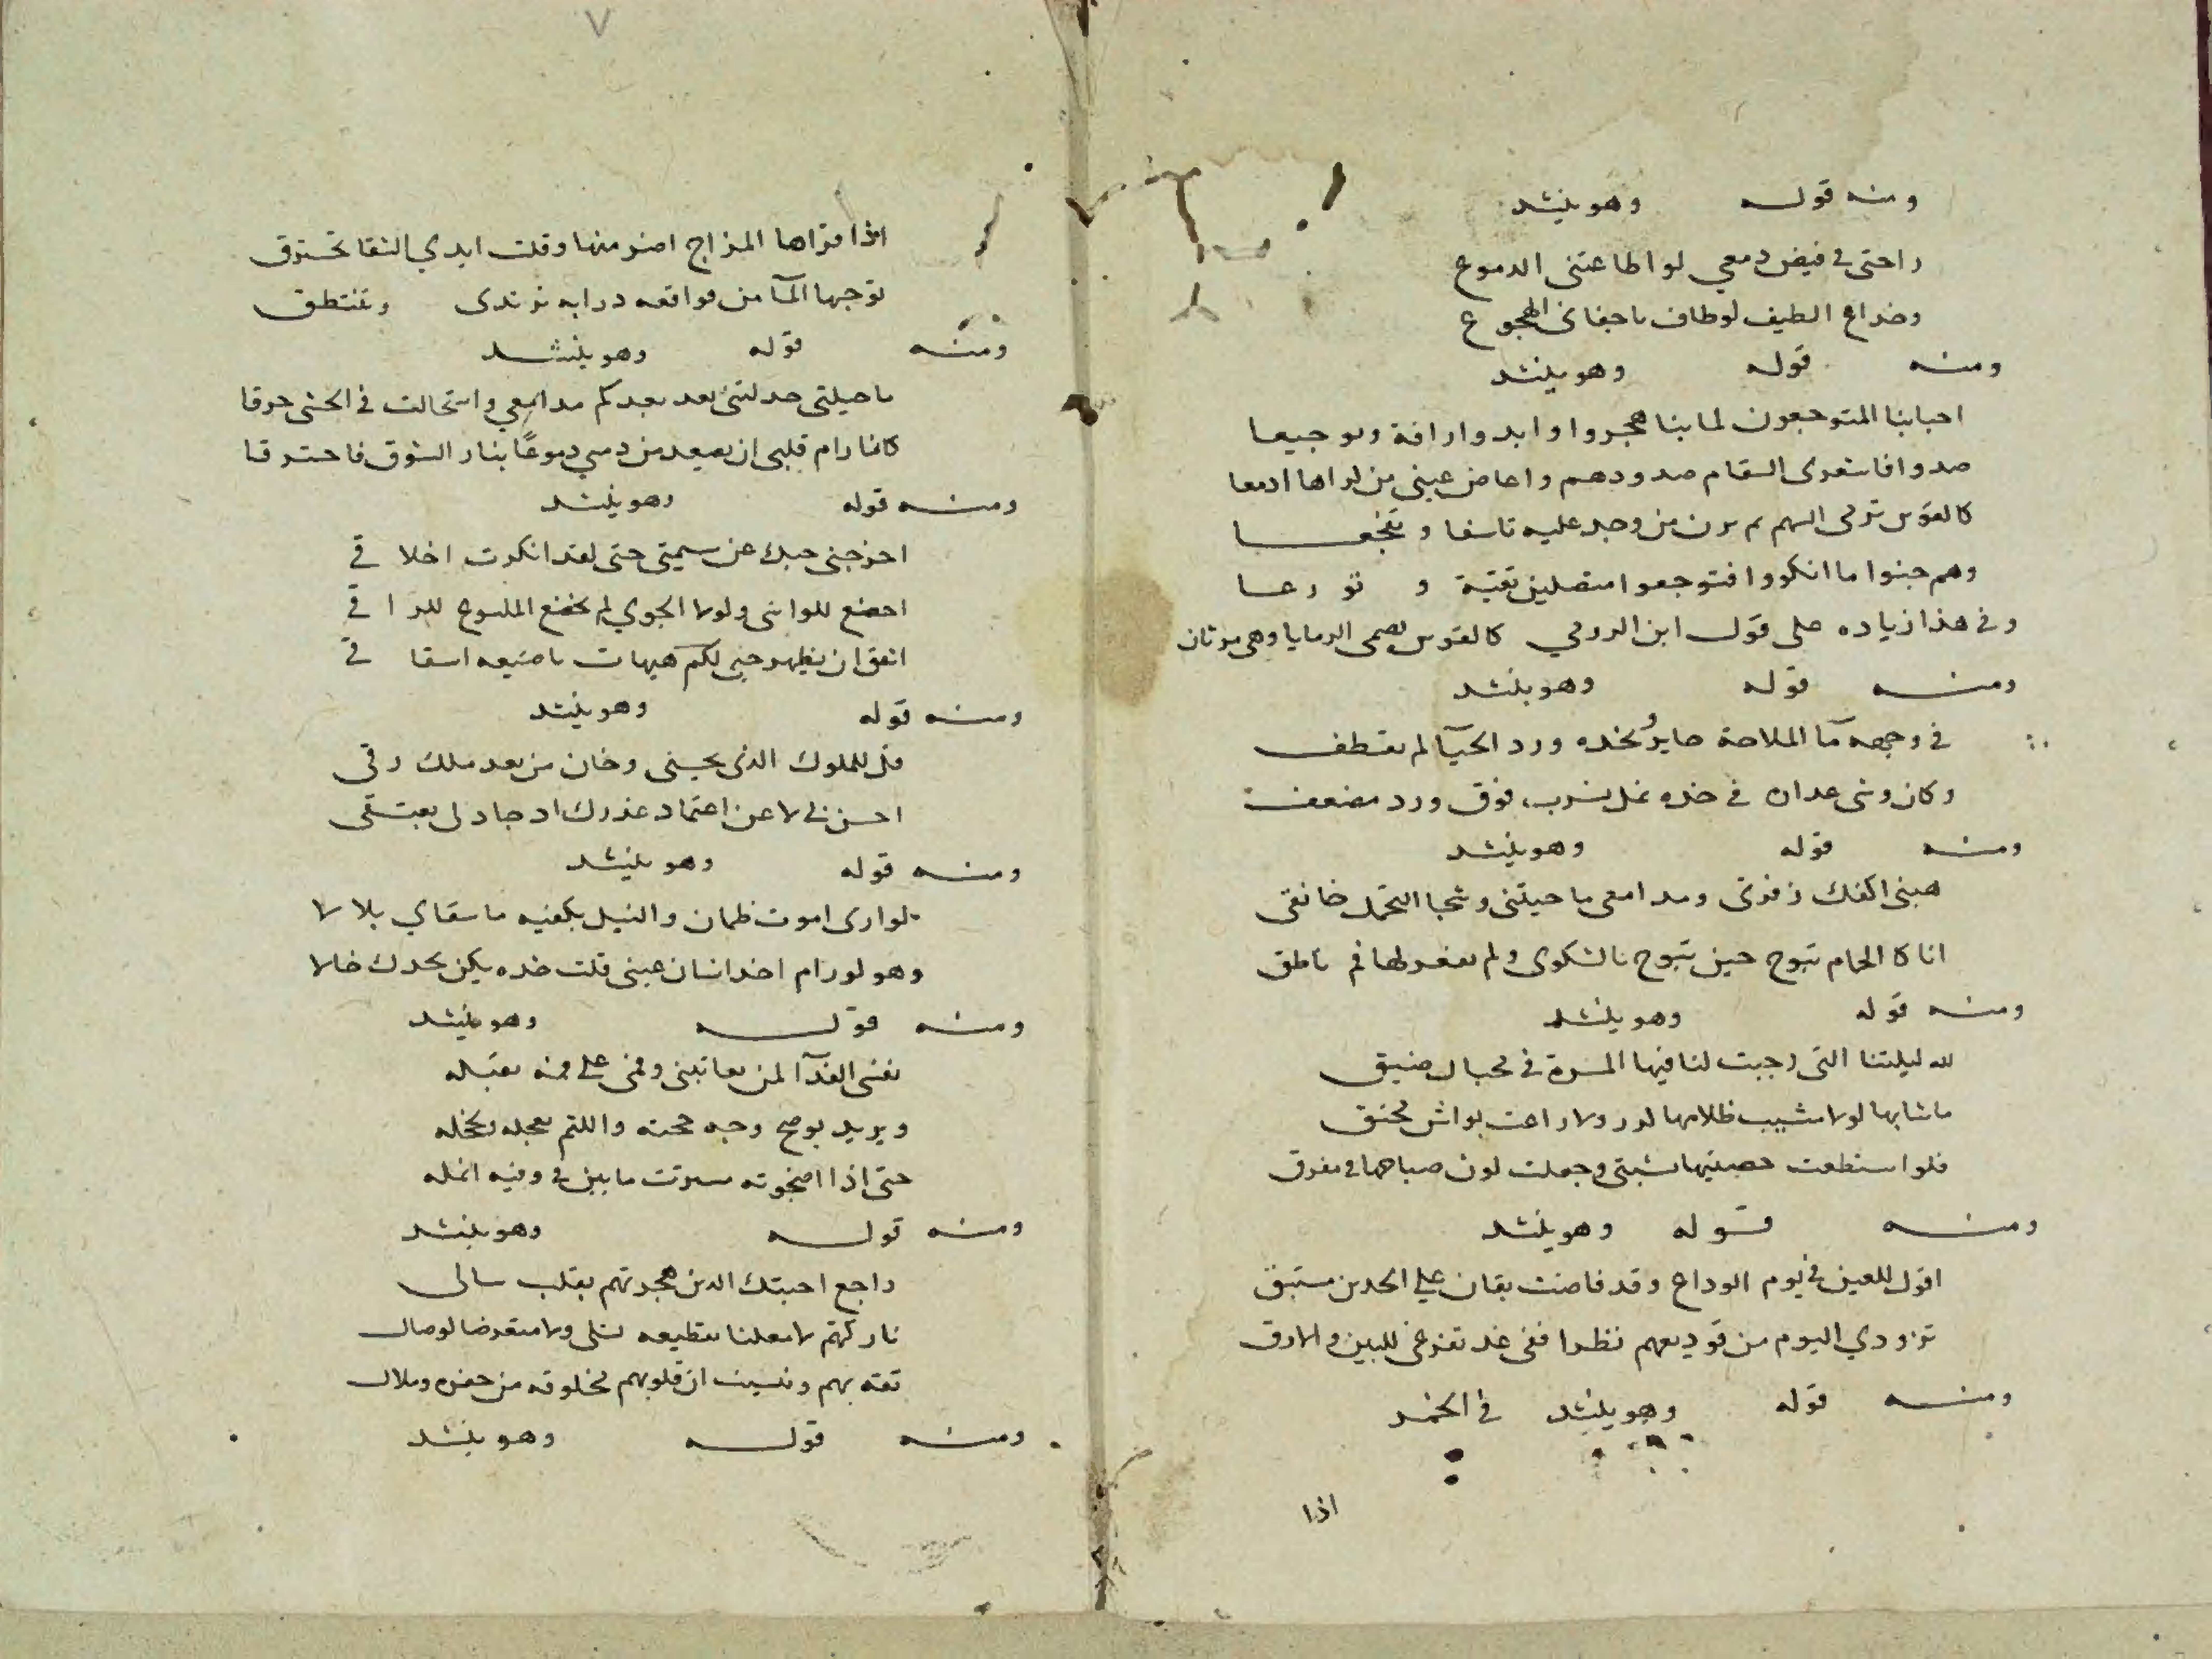 ومنه قوله وهو ينشد
راحتى في فيض دمعي لو اطاعتنى الدموع
وخداع الطيف لو طاف باجفانى الهجوع
ومنه قوله وهو ينشد
احبابنا المتوجعون لما بنا هجروا وابدوا رافة وتوجيعا
صدوا فاستعدى السقام صدودهم واعاض عينى من لراها ادمعا
كالقوس ترمى السهم ثم ترن من وجد عليه تاسفا وتفجعا
وهم جنوا ما انكروا فتوجعوا متصلين تقية و تورعا
وفى هذا زياده على قول ابن الرومي كالقوس تصمى الرمايا وهى مرنان
ومنه قوله وهو ينشد
في وجهه مآ الملاحة حاير وبخده ورد الحيآ لم يقطف
وكان وشى عداره في خده نمل يسرب فوق ورد مضعف
ومنه قوله وهو ينشد
هبنى اكفك زفرتى ومدامعى ما حيلتى وشجا التجمل خانقى
انا كالحمام تبوح حين تبوح بالشكوى ولم يفغر لها فم ناطق
ومنه قوله وهو ينشد
لله ليلتنا التى رحبت لنا فيها المسرة في مجبال ضيق
ما شابها لولا مشيب ظلامها لدر ولا راعت بواش محنق
فلو استطعت خضبتها بشبيبتى وجعلت لون صباحها في مفرق
ومنه قوله وهو ينشد
اقول للعين في يوم الوداع وقد فاضت بقان علي الخدين مستبق
تزودي اليوم من توديعهم نظرا ففى غد تفرغى للبين والارق
ومنه قوله وهو ينشد في الخمر
اذا
٧
اذا قراها المزاج اضرمنها وقلت ايدي النقا تحترق
توجها المآ من فواقعه درابه ترتدى وتنتطق
ومنه قوله وهو ينشد
ما حيلتى خذلتنى بعد بعدكم مدامعي واستحالت في الحشى حرقا
كانما رام قلبى ان يصيد من دمي دموعًا بنار الشوق فاحترقا
ومنه قوله وهو ينشد
اخرجنى حبك عن سيمتى حتى لقد انكرت اخلا قي
اخضع للواشى ولولا الجوي لم يخضع الملسوع للرا قي
اتفق ان يظهر حبى لكم هيهات ما صنيعه اسفا قي
ومنه قوله وهو ينشد
قل للملوك الذى يحبسنى وخان من بعد ملك رقى
احسن لى لا عن اعتماد عذرك اد جاد لى بعتقى
ومنه قوله وهو ينشد
لوارى اموت ظمان والنيل بكفيه ما سقاي بلا لا
وهو لو رام اخد انسان عينى قلت خده يكن بخدك خالا
ومنه قوله وهو ينشد
نفسى الفدآ لمن يعاتبنى وفمى علي فمه يقبله
ويريد يوضح وجه حجته واللثم يعجله ويخجله
حتى اذا اضجرته سرقت ما بين في وفيه انمله
ومنه قوله وهو ينشد
راجع احبتك الدين هجرتهم بقلب سالى
تاركتهم لا معلنا بقطيعه تسلى ولا متعرضا لوصال
ثقه بهم ونسيت ان قلوبهم مخلوقه من جفوه وملال
ومنه قوله وهو ينشد